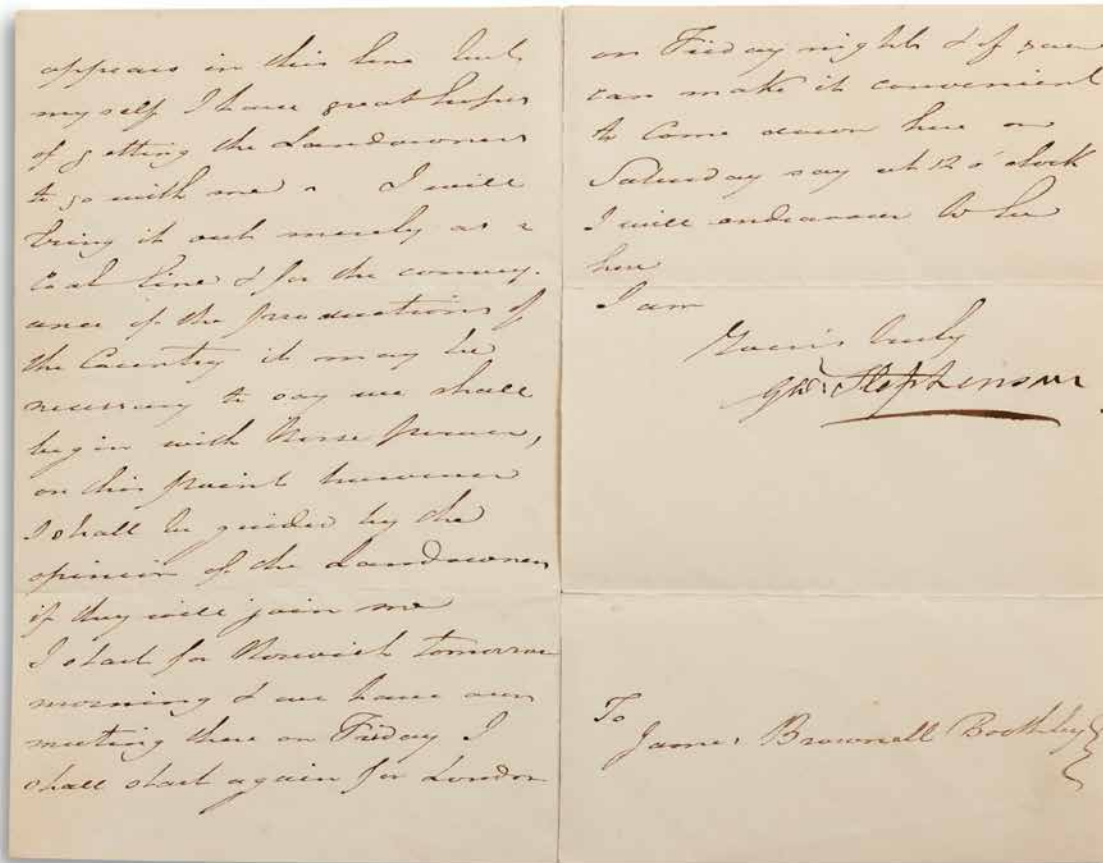 appears in this line but
myself I have great hopes
of getting the Landowners
to go with me I will
bring it out merely as a
Coal line & for the convey-
ance of the productions of
the Country it may be
necessary to say we shall
begin with Horse power,
on this point however
I shall be guided by the
opinion of the Landowners
if they will join me
I start for Norwich tomorrow
morning & we have our
meeting there on Friday I
shall start again for London
on Friday night & if you
can make it convenient
to Come down here on
Saturday say at 12 o'clock
I will endeavour to be
here
I am
Yours truly
Geo. Stephenson
To
James Brownell Boothby